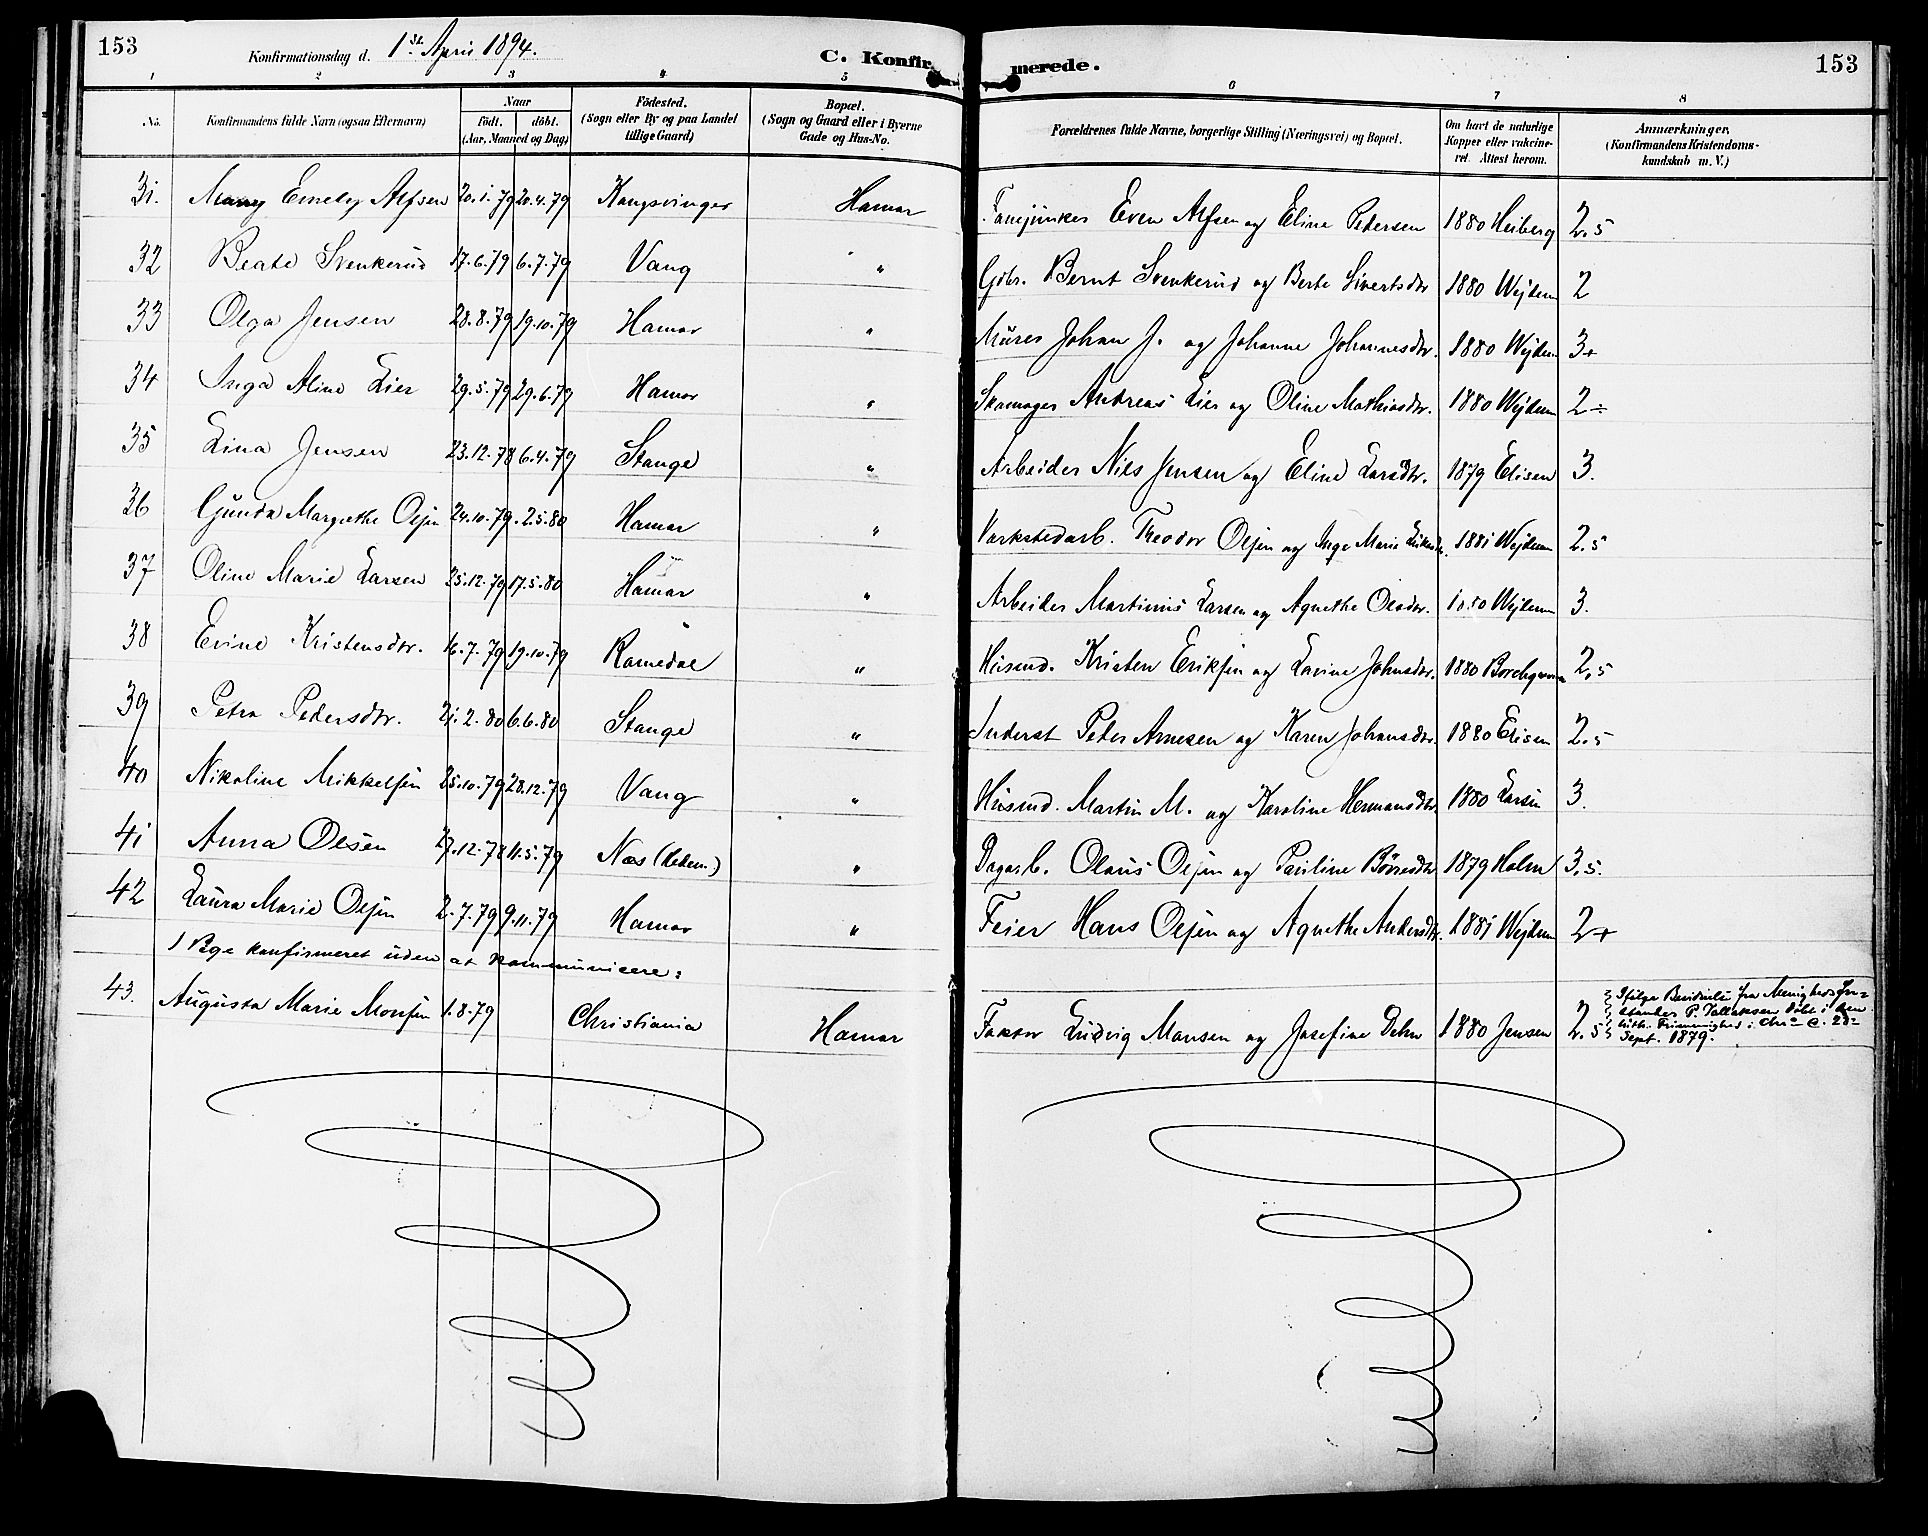 153
Konfirmationsdag d. 1st April 1894.
C. Konfirmerede.
153
1 2 3 4 5 6 7 8
No.
Konfirmandens fulde Navn (ogsaa Efternavn)
Naar
födt. döbt.
(Aar, Maaned og Dag)
Födested.
(Sogn eller By og paa Landet
tillige Gaard)
Bopæl.
(Sogn og Gaard eller i Byerne
Gade og Hus-No.
Forældrenes fulde Navne, borgerlige Stilling (Næringsvei) og Bopæl.
Om havt de naturlige
Kopper eller vakcine-
ret. Attest herom.
Anmærkninger.
(Konfirmandens Kristendoms-
kundskab m. V.)
31. Emely Alfsen 20.1.79 20.4.79 Kongsvinger Hamar Fanejunker Even Alfsen og Eline Pedersen 1880 Heiberg 2,5
32 Beate Svenkerud 17.6.79 6.7.79 Vang " Gdbr. Bernt Svenkerud og Berte Sivertsdtr 1880 Wejdem 2
33 Olga Jensen 28.8.79 19.10.79 Hamar " Murer Johan J. og Johanne Johannesdtr. 1880 Wejdem 3+
34 Inga Aline Lier 29.5.79 29.6.79 Hamar " Skomager Andreas Lier og Oline Mathiasdtr. 1880 Wejdem 2÷
35 Lina Jensen 23.12.78 6.4.79 Stange " Arbeider Nils Jensen og Eline Larsdtr. 1879 Elisen 3.
36 Gunda Margrethe Olsen 24.10.79 2.5.80 Hamar " Værkstedarb. Theodor Olsen og Inge Marie 1881 Wejdem 2,5
37 Oline Marie Larsen 25.12.79 17.5.80 Hamar " Arbeider Martinus Larsen og Agnethe Olsdtr. 1880 Wejdem 3.
38 Evine Kristensdtr. 16.7.79 19.10.79 Romedal " Husmd. Kristen Eriksen og Lavine Johnsdtr. 1880 Borchgrevin 2,5
39 Petra Pedersdtr. 21.2.80 6.6.80 Stange " Inderst Peder Arnesen og Karen Johansdtr. 1880 Elisen 2,5
40 Nikoline Mikkelsen 25.10.79 28.12.79 Vang " Husmd. Martin M. og Karoline Hermansdtr. 1880 Larsen 3.
41 Anna Olsen 27.12.78 11.5.79 Næs (Hedem.) " Dagarb. Olaus Olsen og Pauline Børresdtr 1879 Holm 3,5.
42 Laura Marie Olsen 2.7.79 9.11.79 Hamar " Feier Hans Olsen og Agnethe Andersdtr. 1881 Wejdem 2+
1 Pige konfirmeret uden at kommunicere:
43. Augusta Marie Monsen 1.8.79 Christiania Hamar Faktor Ludvig Monsen og Josefine Dehn 1880 Jensen 2,5
Ifølge Bevidnelse fra Menigheds For-
stander P. døbt i den
luth. Frimenighed i Chra d. 28
Sept. 1879.